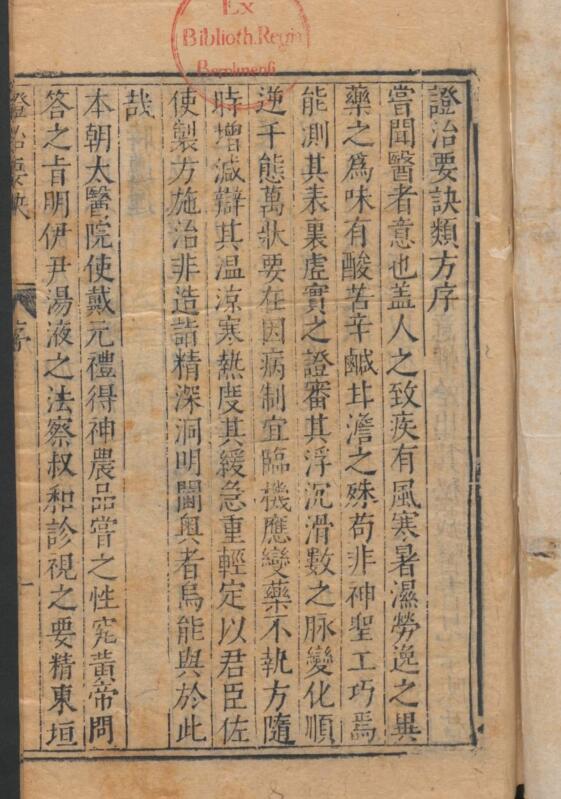 證治要訣類方序
嘗聞醫者意也盖人之致疾有風寒暑濕勞逸之異
藥之爲味有酸苦辛鹹甘澹之殊苟非神聖工巧焉
能測其表裏虛實之證審其浮沉滑數之脉變化順
逆千態萬狀要在因病制宜臨機應變藥不執方隨
時增減辯其温涼寒熱度其緩急重輕定以君臣佐
使製方施治非造詣精深洞明閫奥者烏能與於此
哉
本朝太醫院使戴元禮得神農品嘗之性究黃帝問
答之旨明伊尹湯液之法察叔和診視之要精東垣
證治要訣
序
一
Ex
Biblioth. Regia
Berolinensi